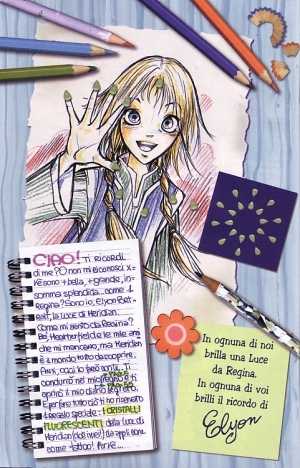 CIAO! Ti ricordi
di me? O non mi riconosci x-
ké sono + bella, + grande, in-
somma splendida... come 1
regina? Sono io, Elyon
la luce di Meridian.
Come mi sento da Regina?
Heatherfield e le mie ami-
che mi mancano, ma Meridian
è 1 mondo tutto da scoprire.
condurrò nel mio regno e ti
aprirò il mio diario segreto.
E per fare tutto ciò ti ho riservato
1 regalo speciale: I CRISTALLI
FLUORESCENTI della Luce di
Meridian da applicare
come tattoo!
In ognuna di noi
brilla una Luce
da Regina.
In ognuna di voi
brilli il ricordo di
Elyon